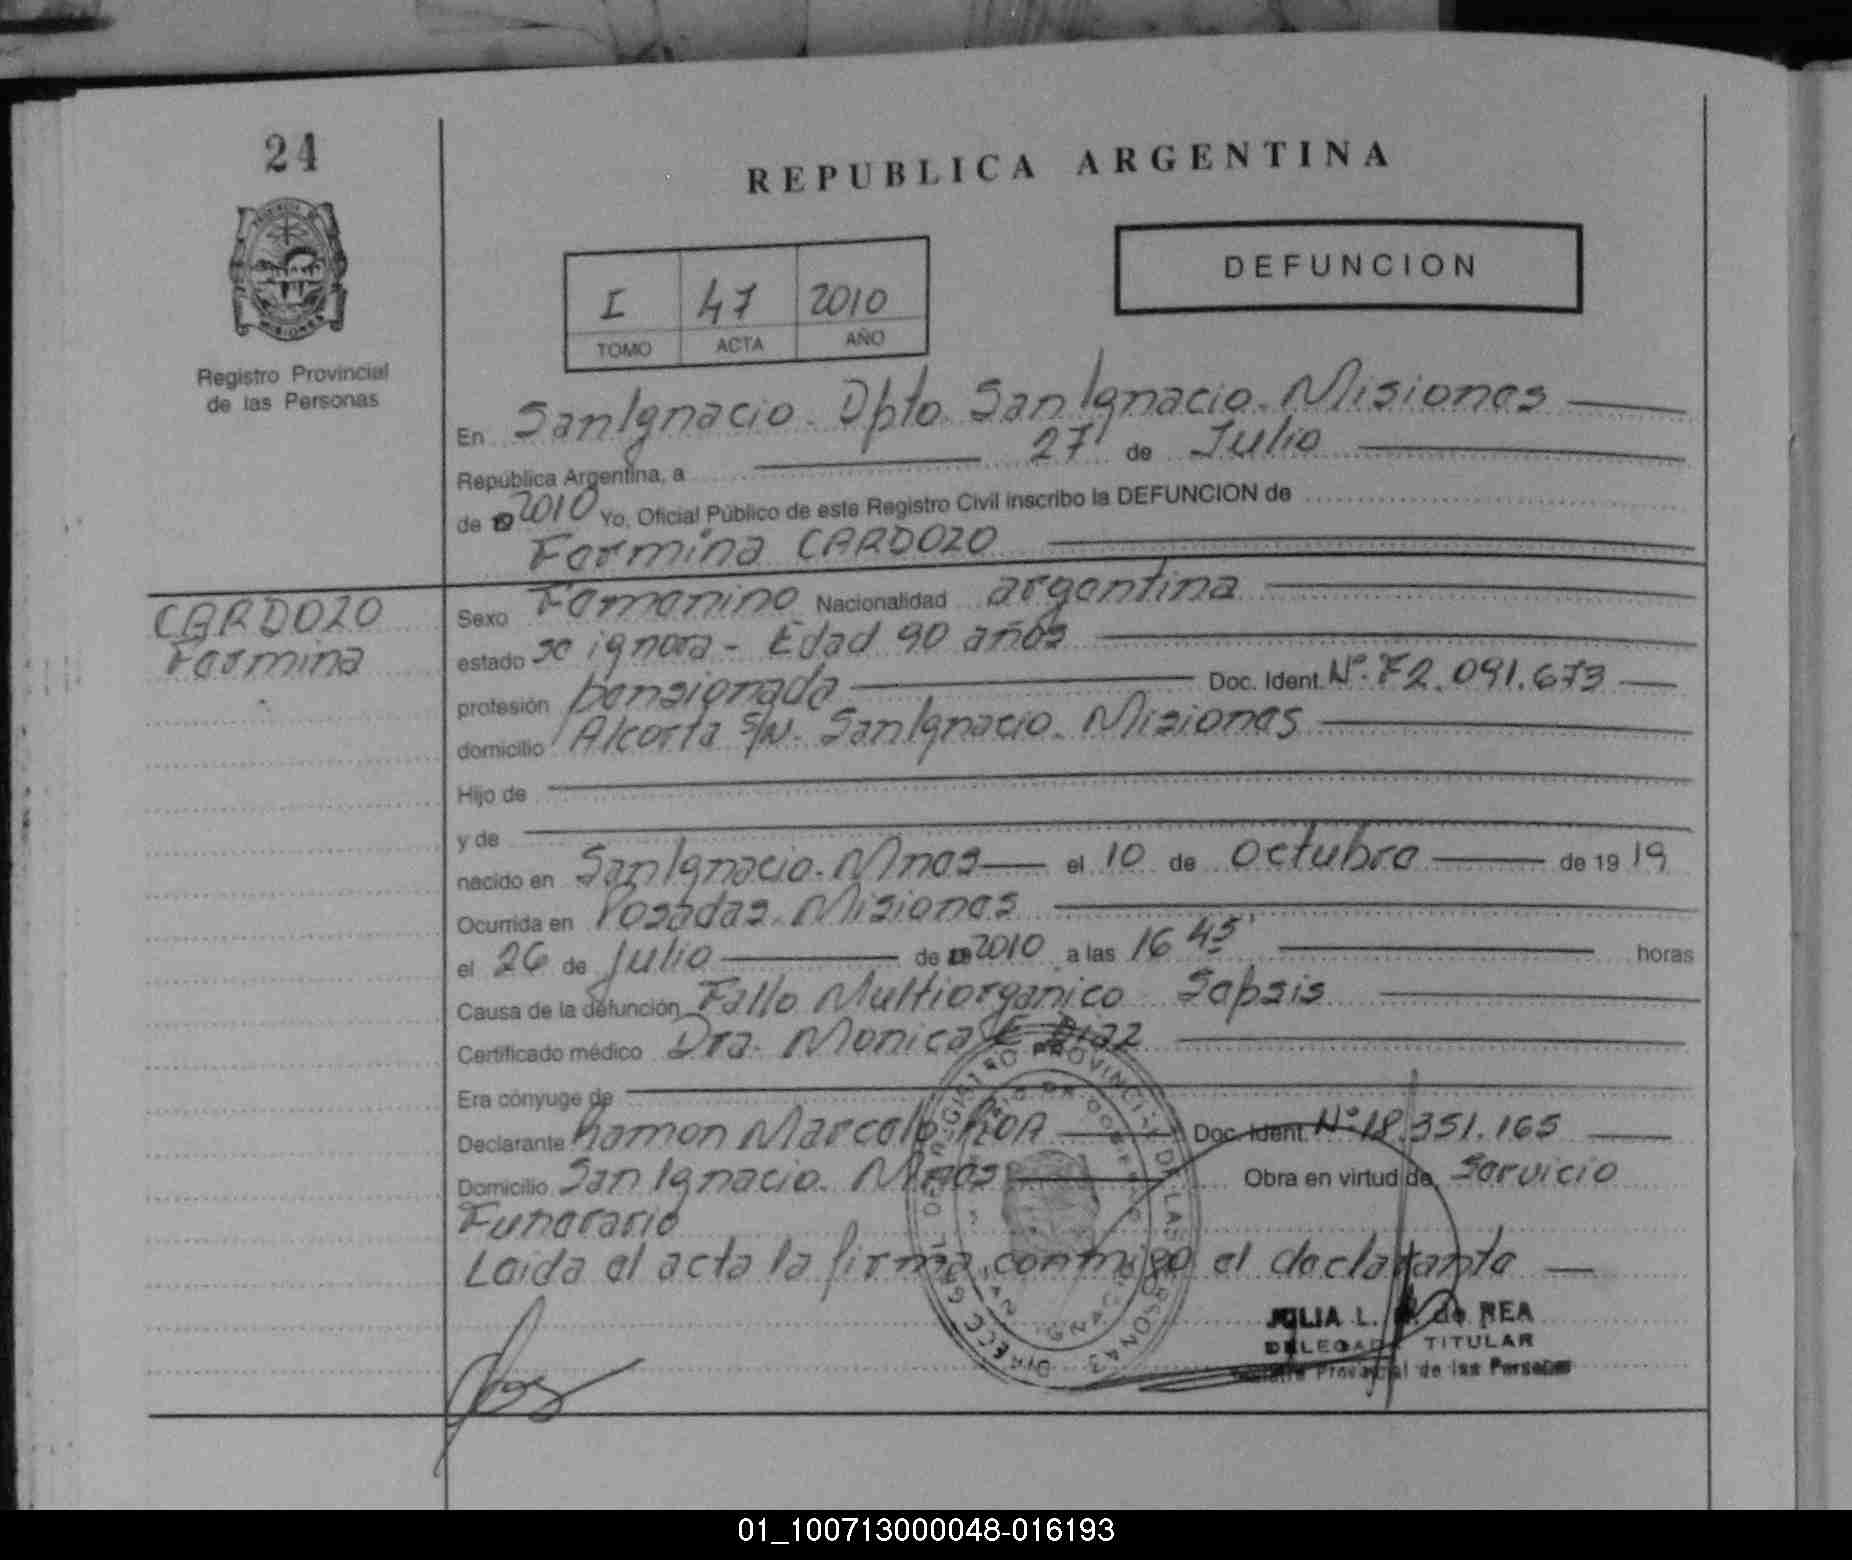 24
REPUBLICA ARGENTINA
DEFUNCION
I 47 2010
TOMO ACTA AÑO
MISIONES
Registro Provincial
de las Personas
En San Ignacio. Dpto. San Ignacio. Misiones
República Argentina, a 27 de Julio
de 2010 Yo, Oficial Público de este Registro Civil inscribo la DEFUNCION de
Fermina CARDOZO
CARDOZO
Fermina
Sexo Femenino Nacionalidad argentina
estado se ignora - Edad 90 años
profesión pensionada Doc. Ident. Nº. F2.091.673
domicilio Alcorta S/N. San Ignacio. Misiones
Hijo de
y de
nacido en San Ignacio. Mnes el 10 de octubre de 19 19
Ocurrida en Posadas. Misiones
el 26 de Julio de 2010 a las 16 45' horas
Causa de la defunción Fallo Multiorganico Sepsis
Certificado médico Dra. Monica E Diaz
Era cónyuge de
Declarante Ramon Marcelo ROA Doc. Ident. Nº 18.351.165
Domicilio San Ignacio. Mnes Obra en virtud de Servicio
Funerario
Leida el acta la firma conmigo el declarante
DIRECC GRAL DEL REGISTRO PROVINCIAL DE LAS PERSONAS
SAN IGNACIO
JULIA L. de REA
DELEGADA TITULAR
Registro Provincial de las Personas
01_100713000048-016193